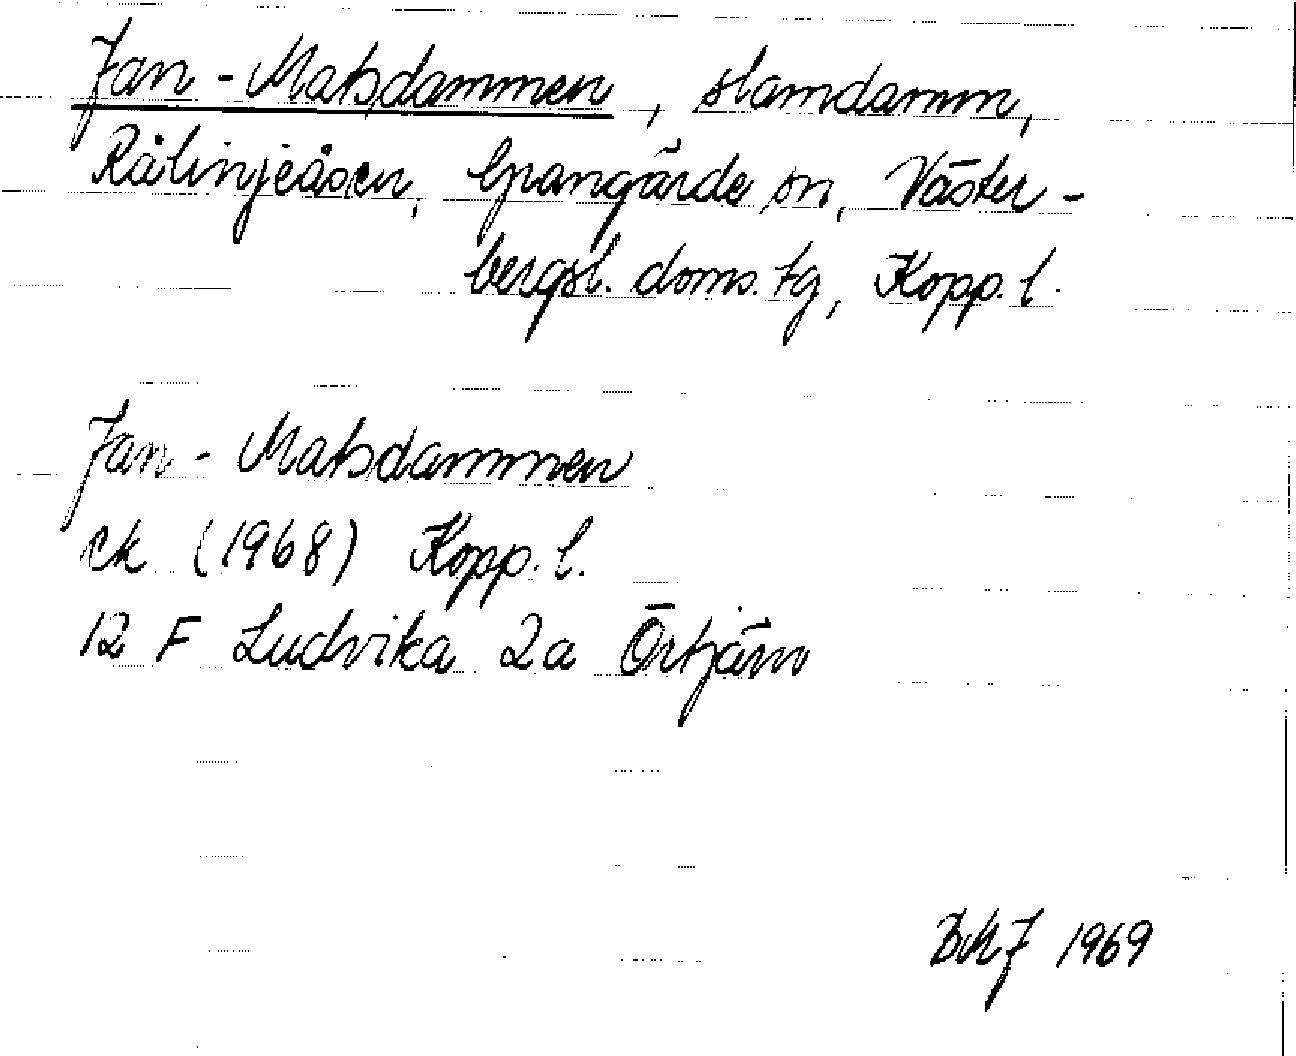 Jan-Matsdammen, slamdamm,
Rålinjeåsen, Grangärde sn, Väster-
bergsl. doms. tg, Kopp. l.
Jan-Matsdammen
ek (1968) Kopp. l.
12 F Ludvika 2a Örtjärn
BMJ 1969